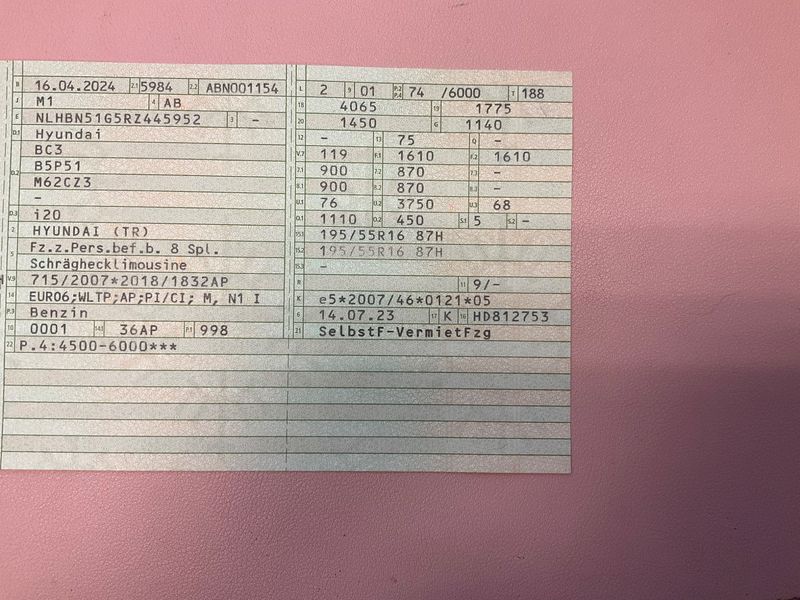 B 16.04.2024 2.1 5984 2.2 ABN001154
J M1 4 AB
E NLHBN51G5RZ445952 3 -
D.1 Hyundai
BC3
B5P51
D.2 M62CZ3
-
D.3 i20
2 HYUNDAI (TR)
5 Fz.z.Pers.bef.b. 8 Spl.
Schräghecklimousine
V.9 715/2007*2018/1832AP
14 EURO6;WLTP;AP;PI/CI; M, N1 I
P.3 Benzin
10 0001 14.1 36AP P.1 998
22 P.4:4500-6000***
L 2 9 01 P.2 P.4 74 /6000 T 188
18 4065 19 1775
20 1450 G 1140
12 - 13 75 Q -
V.7 119 F.1 1610 F.2 1610
7.1 900 7.2 870 7.3 -
8.1 900 8.2 870 8.3 -
U.1 76 U.2 3750 U.3 68
O.1 1110 O.2 450 S.1 5 S.2 -
15.1 195/55R16 87H
15.2 195/55R16 87H
15.3 -
R 11 9/-
K e5*2007/46*0121*05
6 14.07.23 17 K 16 HD812753
21 SelbstF-VermietFzg